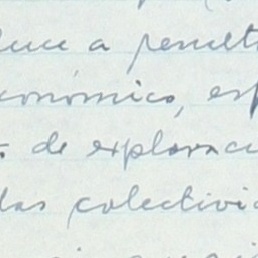 duce a result
económico, esp
s de exploraci
das colectivi